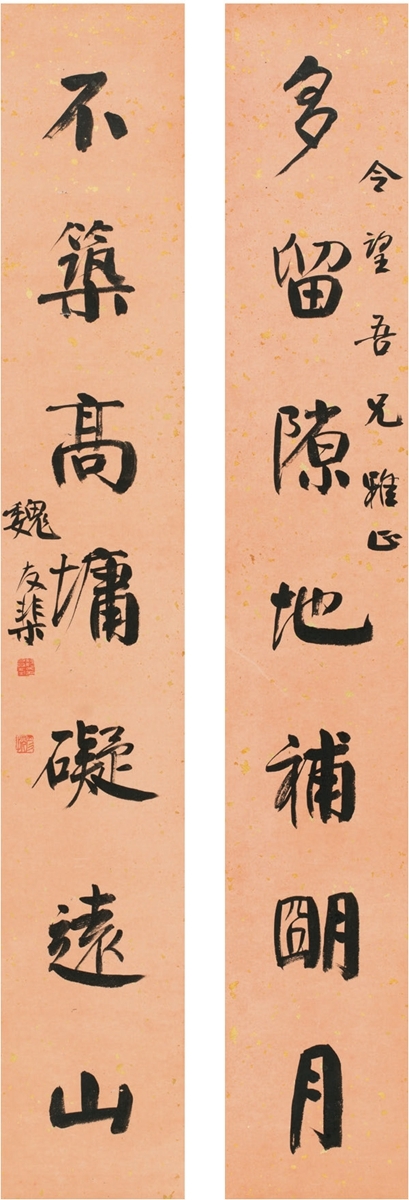 多留隙地補朙月
令望吾兄雅正
不築高墉礙遠山
魏友棐